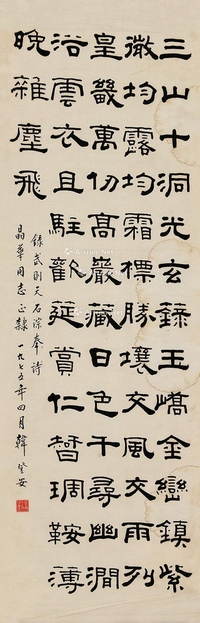 三山十洞光玄錄玉嶠金巒鎮紫
微均露均霜標勝壤交風交雨列
皇畿萬仞高巖藏日色千尋幽澗
浴雲衣且駐歡延賞仁智琱鞍薄
晚雜塵飛
錄武則天石淙奉詩
晶華同志正隸 一九七五年四月 韓登安